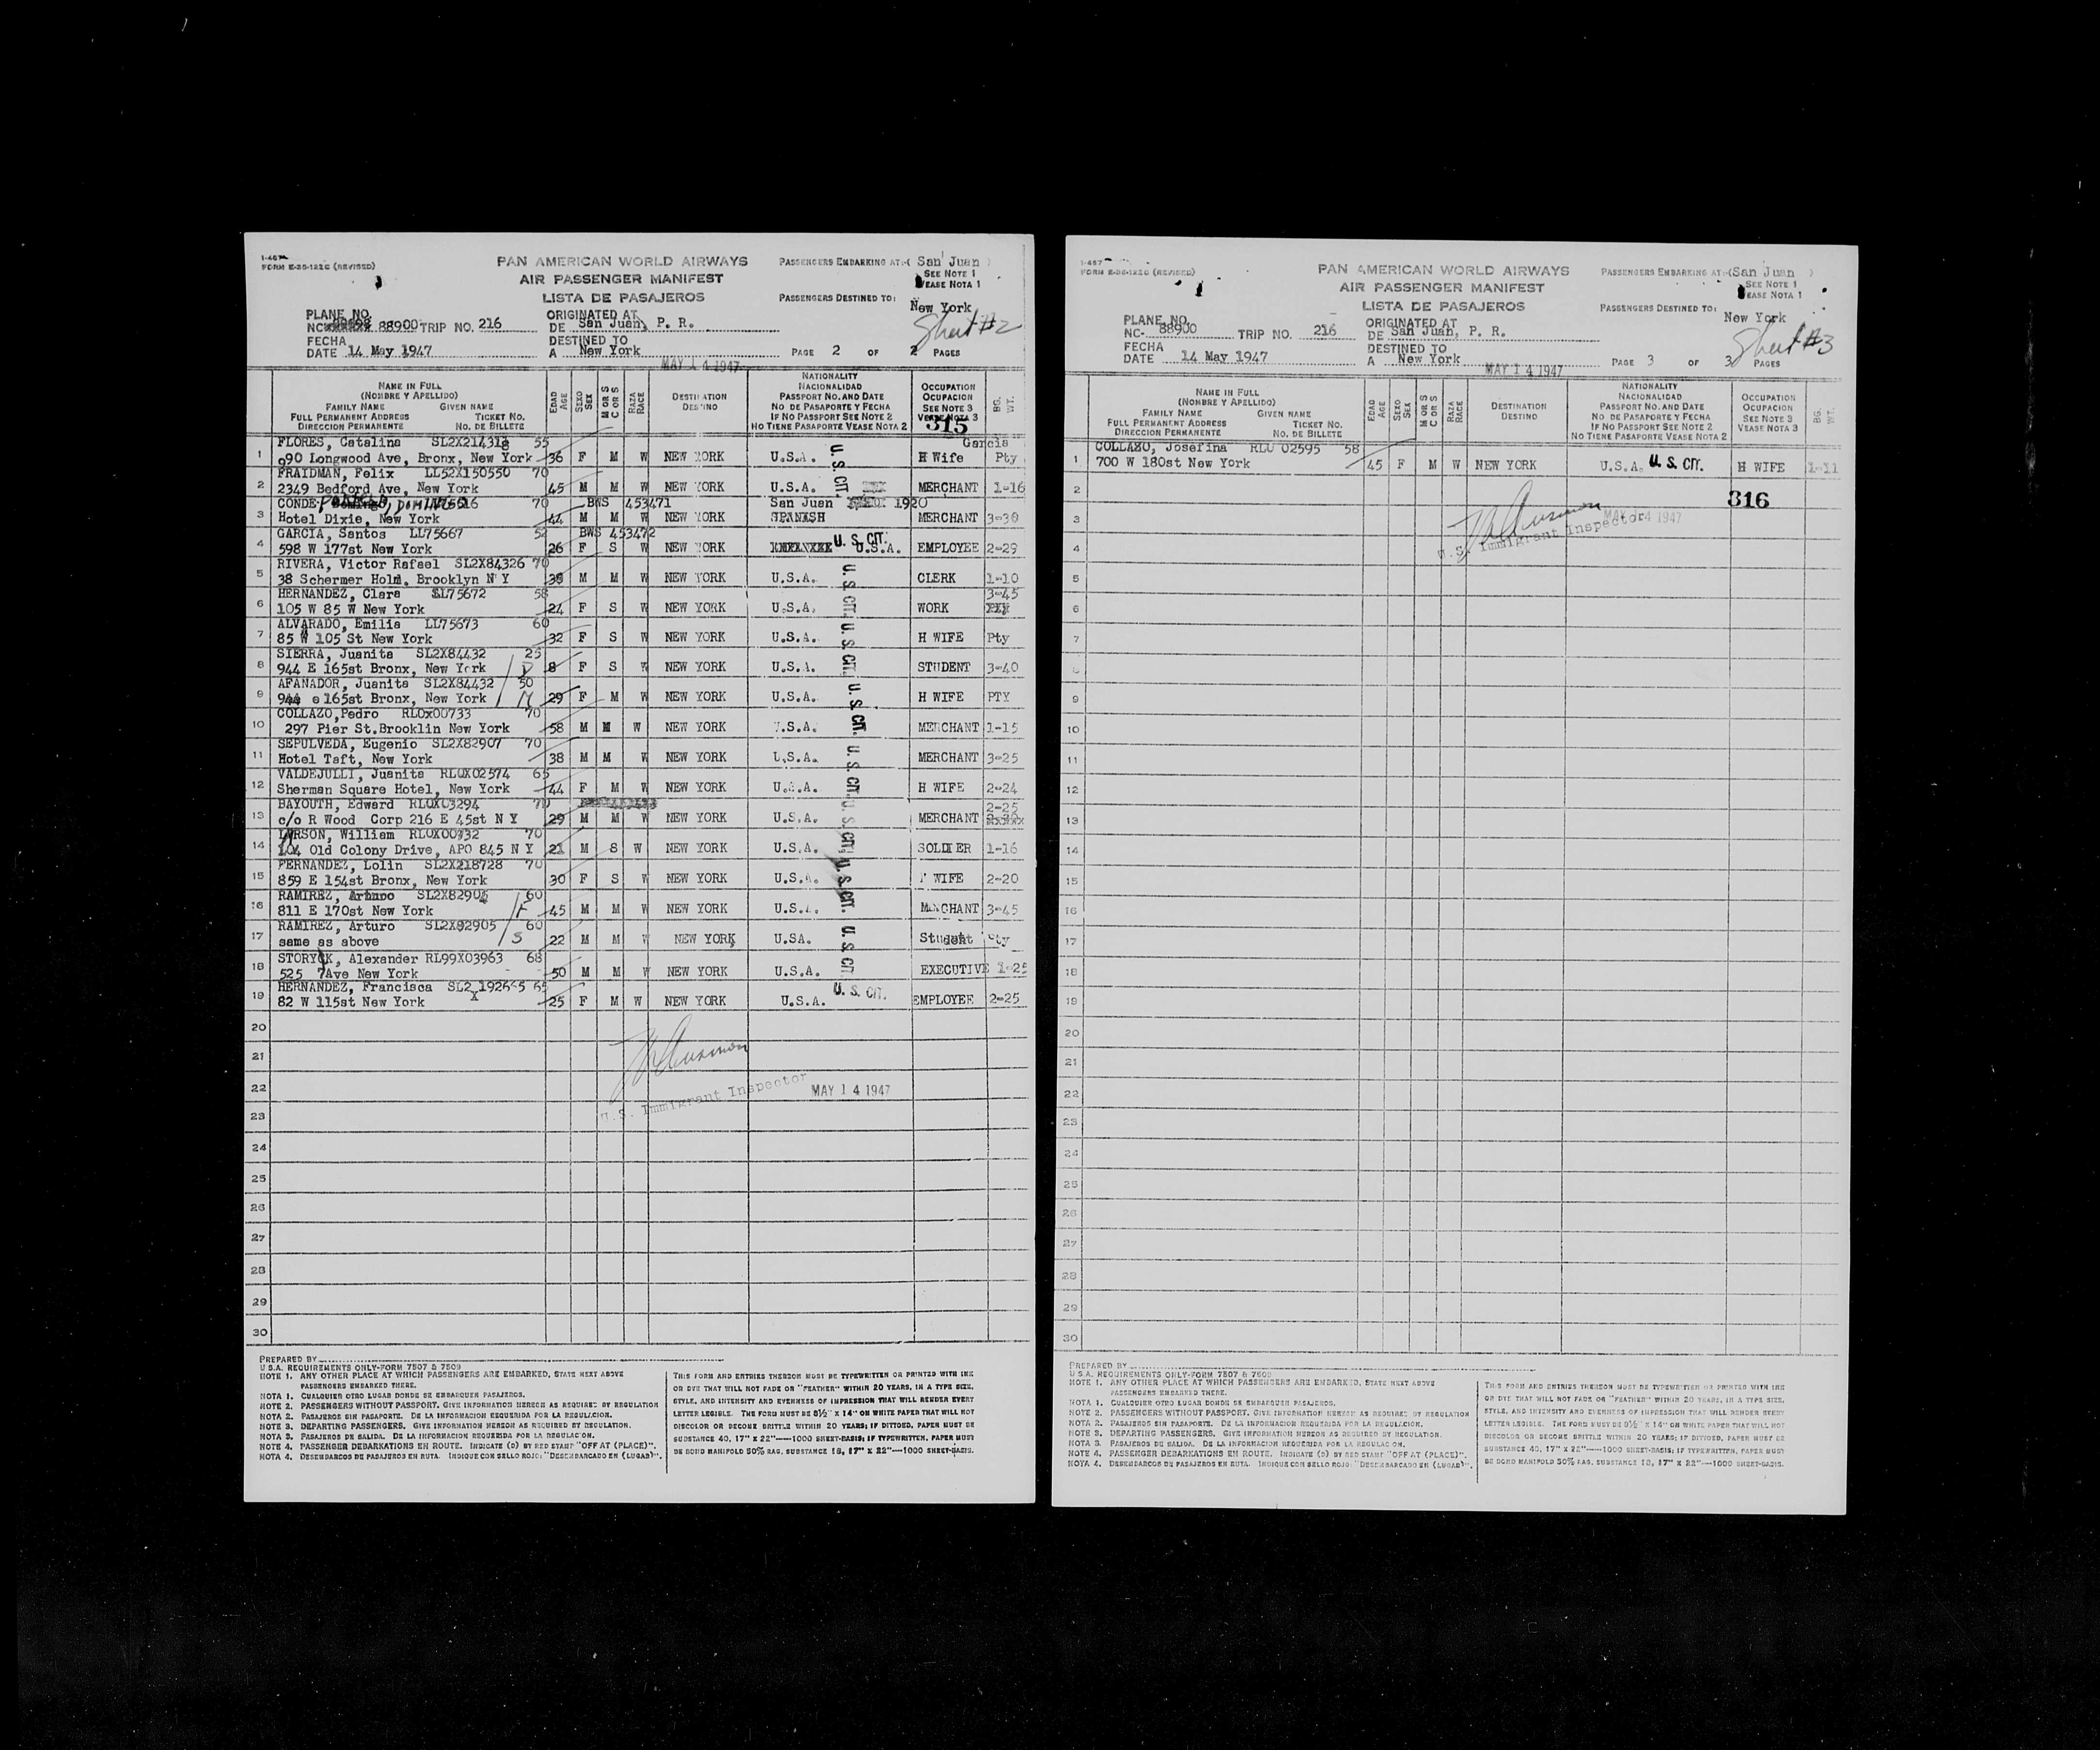 I-467
FORM E-35-122C (REVISED)
PAN AMERICAN WORLD AIRWAYS
AIR PASSENGER MANIFEST
LISTA DE PASAJEROS
PASSENGERS EMBARKING AT:( San Juan )
SEE NOTE 1
VEASE NOTA 1
PASSENGERS DESTINED TO:
New York
Sheet #2
PLANE NO.
NC 88900 TRIP NO. 216
ORIGINATED AT
DE San Juan, P. R.
FECHA
DATE 14 May 1947
DESTINED TO
A New York
PAGE 2 OF 2 PAGES
MAY 14 1947
NAME IN FULL
(NOMBRE Y APELLIDO)
FAMILY NAME GIVEN NAME
FULL PERMANENT ADDRESS TICKET NO.
DIRECCION PERMANENTE NO. DE BILLETE
EDAD AGE
SEXO SEX
M OR S C OR S
RAZA RACE
DESTINATION
DESTINO
NATIONALITY
NACIONALIDAD
PASSPORT NO. AND DATE
NO DE PASAPORTE Y FECHA
IF NO PASSPORT SEE NOTE 2
NO TIENE PASAPORTE VEASE NOTA 2
OCCUPATION
OCUPACION
SEE NOTE 3
VEASE NOTA 3
BG. WT.
315
FLORES, Catalina SL2X214318 55 Garcia
1 090 Longwood Ave, Bronx, New York 36 F M W NEW YORK U.S.A. H Wife Pty
FRAIDMAN, Felix LL52X150550 70
2 2349 Bedford Ave, New York 45 M M W NEW YORK U.S.A. MERCHANT 1-16
CONDE DOMINGO 70 BWS 453471 San Juan 1920
3 Hotel Dixie, New York 44 M M W NEW YORK SPANISH MERCHANT 3-30
GARCIA, Santos LL75667 52 BWS 453472
4 598 W 177st New York 26 F S W NEW YORK U. S. CIT. U.S.A. EMPLOYEE 2-29
RIVERA, Victor Rafael SL2X84326 70
5 38 Schermer Holm. Brooklyn N Y 39 M M W NEW YORK U.S.A. CLERK 1-10
HERNANDEZ, Clara SL75672 58 3-45
6 105 W 85 W New York 24 F S W NEW YORK U.S.A. WORK
ALVARADO, Emilia LL75673 60
7 85 W 105 St New York 32 F S W NEW YORK U.S.A. H WIFE Pty
SIERRA, Juanita SL2X84432 25
8 944 E 165st Bronx, New York D 8 F S W NEW YORK U.S.A. STUDENT 3-40
AFANADOR, Juanita SL2X84432 50
9 944 e 165st Bronx, New York M 29 F M W NEW YORK U.S.A. H WIFE PTY
COLLAZO,Pedro RLOx00733 70
10 297 Pier St.Brooklin New York 58 M M W NEW YORK U.S.A. MERCHANT 1-15
SEPULVEDA, Eugenio SL2X82907 70
11 Hotel Taft, New York 38 M M W NEW YORK U.S.A. MERCHANT 3-25
VALDEJULLI, Juanita RLOX02574 65
12 Sherman Square Hotel, New York 44 F M W NEW YORK U.S.A. H WIFE 2-24
BAYOUTH, Edward RLOX03294 70 2-25
13 c/o R Wood Corp 216 E 45st N Y 29 M M W NEW YORK U.S.A. MERCHANT
LARSON, William RLOX00732 70
14 104 Old Colony Drive, APO 845 N Y 21 M S W NEW YORK U.S.A. SOLDIER 1-16
FERNANDEZ, Lolin SL2X218728 70
15 859 E 154st Bronx, New York 30 F S W NEW YORK U.S.A. H WIFE 2-20
RAMIREZ, Arturo SL2X82905 60
16 811 E 170st New York F 45 M M W NEW YORK U.S.A. MERCHANT 3-45
RAMIREZ, Arturo SL2X82905 60
17 same as above S 22 M M W NEW YORK U.SA. Student Pty
STORYCK, Alexander RL99X03963 68
18 525 7Ave New York 50 M M W NEW YORK U.S.A. EXECUTIVE 1-25
HERNANDEZ, Francisca SL2X192665 65
19 82 W 115st New York 25 F M W NEW YORK U.S.A. U. S. CIT. EMPLOYEE 2-25
20
21
22
U.S. Immigrant Inspector MAY 14 1947
23
24
25
26
27
28
29
30
PREPARED BY
U S.A. REQUIREMENTS ONLY-FORM 7507 & 7509
NOTE 1. ANY OTHER PLACE AT WHICH PASSENGERS ARE EMBARKED, STATE NEXT ABOVE
PASSENGERS EMBARKED THERE.
NOTA 1. CUALQUIER OTRO LUGAR DONDE SE EMBARQUEN PASAJEROS.
NOTE 2. PASSENGERS WITHOUT PASSPORT. GIVE INFORMATION HEREON AS REQUIRED BY REGULATION
NOTA 2. PASAJEROS SIN PASAPORTE. DE LA INFORMACION REQUERIDA POR LA REGULACION.
NOTE 3. DEPARTING PASSENGERS. GIVE INFORMATION HEREON AS REQUIRED BY REGULATION.
NOTA 3. PASAJEROS DE SALIDA. DE LA INFORMACION REQUERIDA POR LA REGULACION.
NOTE 4. PASSENGER DEBARKATIONS EN ROUTE. INDICATE (D) BY RED STAMP "OFF AT (PLACE)".
NOTA 4. DESEMBARCOS DE PASAJEROS EN RUTA. INDIQUE CON SELLO ROJO: "DESEMBARCADO EN (LUGAR)".
THIS FORM AND ENTRIES THEREON MUST BE TYPEWRITTEN OR PRINTED WITH INK
OR DYE THAT WILL NOT FADE OR "FEATHER" WITHIN 20 YEARS, IN A TYPE SIZE,
STYLE, AND INTENSITY AND EVENNESS OF IMPRESSION THAT WILL RENDER EVERY
LETTER LEGIBLE. THE FORM MUST BE 8½" X 14" ON WHITE PAPER THAT WILL NOT
DISCOLOR OR BECOME BRITTLE WITHIN 20 YEARS; IF DITTOED, PAPER MUST BE
SUBSTANCE 40, 17" X 22"-----1000 SHEET-BASIS; IF TYPEWRITTEN, PAPER MUST
BE BOND MANIFOLD 50% RAG, SUBSTANCE 18, 17" X 22"-----1000 SHEET-BASIS.
I-467
FORM E-35-122C (REVISED)
PAN AMERICAN WORLD AIRWAYS
AIR PASSENGER MANIFEST
LISTA DE PASAJEROS
PASSENGERS EMBARKING AT:(San Juan )
SEE NOTE 1
VEASE NOTA 1
PASSENGERS DESTINED TO:
New York
Sheet #3
PLANE NO.
NC- 88900 TRIP NO. 216
ORIGINATED AT
DE San Juan, P. R.
FECHA
DATE 14 May 1947
DESTINED TO
A New York
PAGE 3 OF 3 PAGES
MAY 14 1947
NAME IN FULL
(NOMBRE Y APELLIDO)
FAMILY NAME GIVEN NAME
FULL PERMANENT ADDRESS TICKET NO.
DIRECCION PERMANENTE NO. DE BILLETE
EDAD AGE
SEXO SEX
M OR S C OR S
RAZA RACE
DESTINATION
DESTINO
NATIONALITY
NACIONALIDAD
PASSPORT NO. AND DATE
NO DE PASAPORTE Y FECHA
IF NO PASSPORT SEE NOTE 2
NO TIENE PASAPORTE VEASE NOTA 2
OCCUPATION
OCUPACION
SEE NOTE 3
VEASE NOTA 3
BG. WT.
COLLAZO, Josefina RLO 02595 58
1 700 W 180st New York 45 F M W NEW YORK U.S.A. U. S. CIT. H WIFE 1-11
2 316
3 MAY 14 1947
U.S. Immigrant Inspector
4
5
6
7
8
9
10
11
12
13
14
15
16
17
18
19
20
21
22
23
24
25
26
27
28
29
30
PREPARED BY
U S.A. REQUIREMENTS ONLY-FORM 7507 & 7509
NOTE 1. ANY OTHER PLACE AT WHICH PASSENGERS ARE EMBARKED, STATE NEXT ABOVE
PASSENGERS EMBARKED THERE.
NOTA 1. CUALQUIER OTRO LUGAR DONDE SE EMBARQUEN PASAJEROS.
NOTE 2. PASSENGERS WITHOUT PASSPORT. GIVE INFORMATION HEREON AS REQUIRED BY REGULATION
NOTA 2. PASAJEROS SIN PASAPORTE. DE LA INFORMACION REQUERIDA POR LA REGULACION.
NOTE 3. DEPARTING PASSENGERS. GIVE INFORMATION HEREON AS REQUIRED BY REGULATION.
NOTA 3. PASAJEROS DE SALIDA. DE LA INFORMACION REQUERIDA POR LA REGULACION.
NOTE 4. PASSENGER DEBARKATIONS EN ROUTE. INDICATE (D) BY RED STAMP "OFF AT (PLACE)".
NOTA 4. DESEMBARCOS DE PASAJEROS EN RUTA. INDIQUE CON SELLO ROJO: "DESEMBARCADO EN (LUGAR)".
THIS FORM AND ENTRIES THEREON MUST BE TYPEWRITTEN OR PRINTED WITH INK
OR DYE THAT WILL NOT FADE OR "FEATHER" WITHIN 20 YEARS, IN A TYPE SIZE,
STYLE, AND INTENSITY AND EVENNESS OF IMPRESSION THAT WILL RENDER EVERY
LETTER LEGIBLE. THE FORM MUST BE 8½" X 14" ON WHITE PAPER THAT WILL NOT
DISCOLOR OR BECOME BRITTLE WITHIN 20 YEARS; IF DITTOED, PAPER MUST BE
SUBSTANCE 40, 17" X 22"-----1000 SHEET-BASIS; IF TYPEWRITTEN, PAPER MUST
BE BOND MANIFOLD 50% RAG, SUBSTANCE 18, 17" X 22"-----1000 SHEET-BASIS.